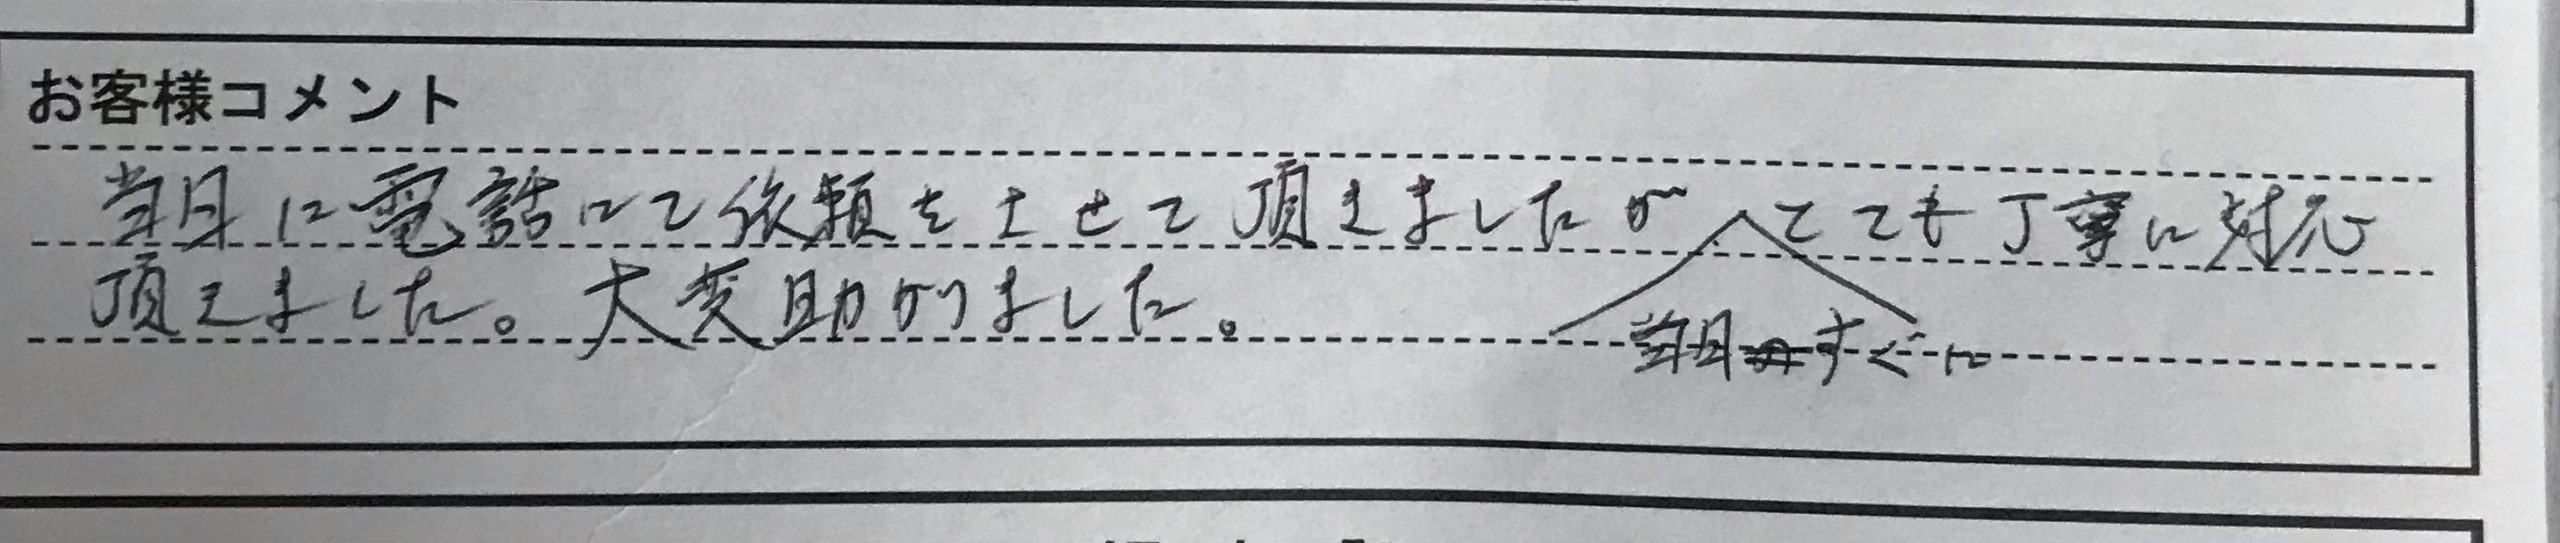 お客様コメント
当日に電話にて依頼をさせて頂きましたが とても丁寧に対応
頂きました。大変助かりました。
当日すぐに